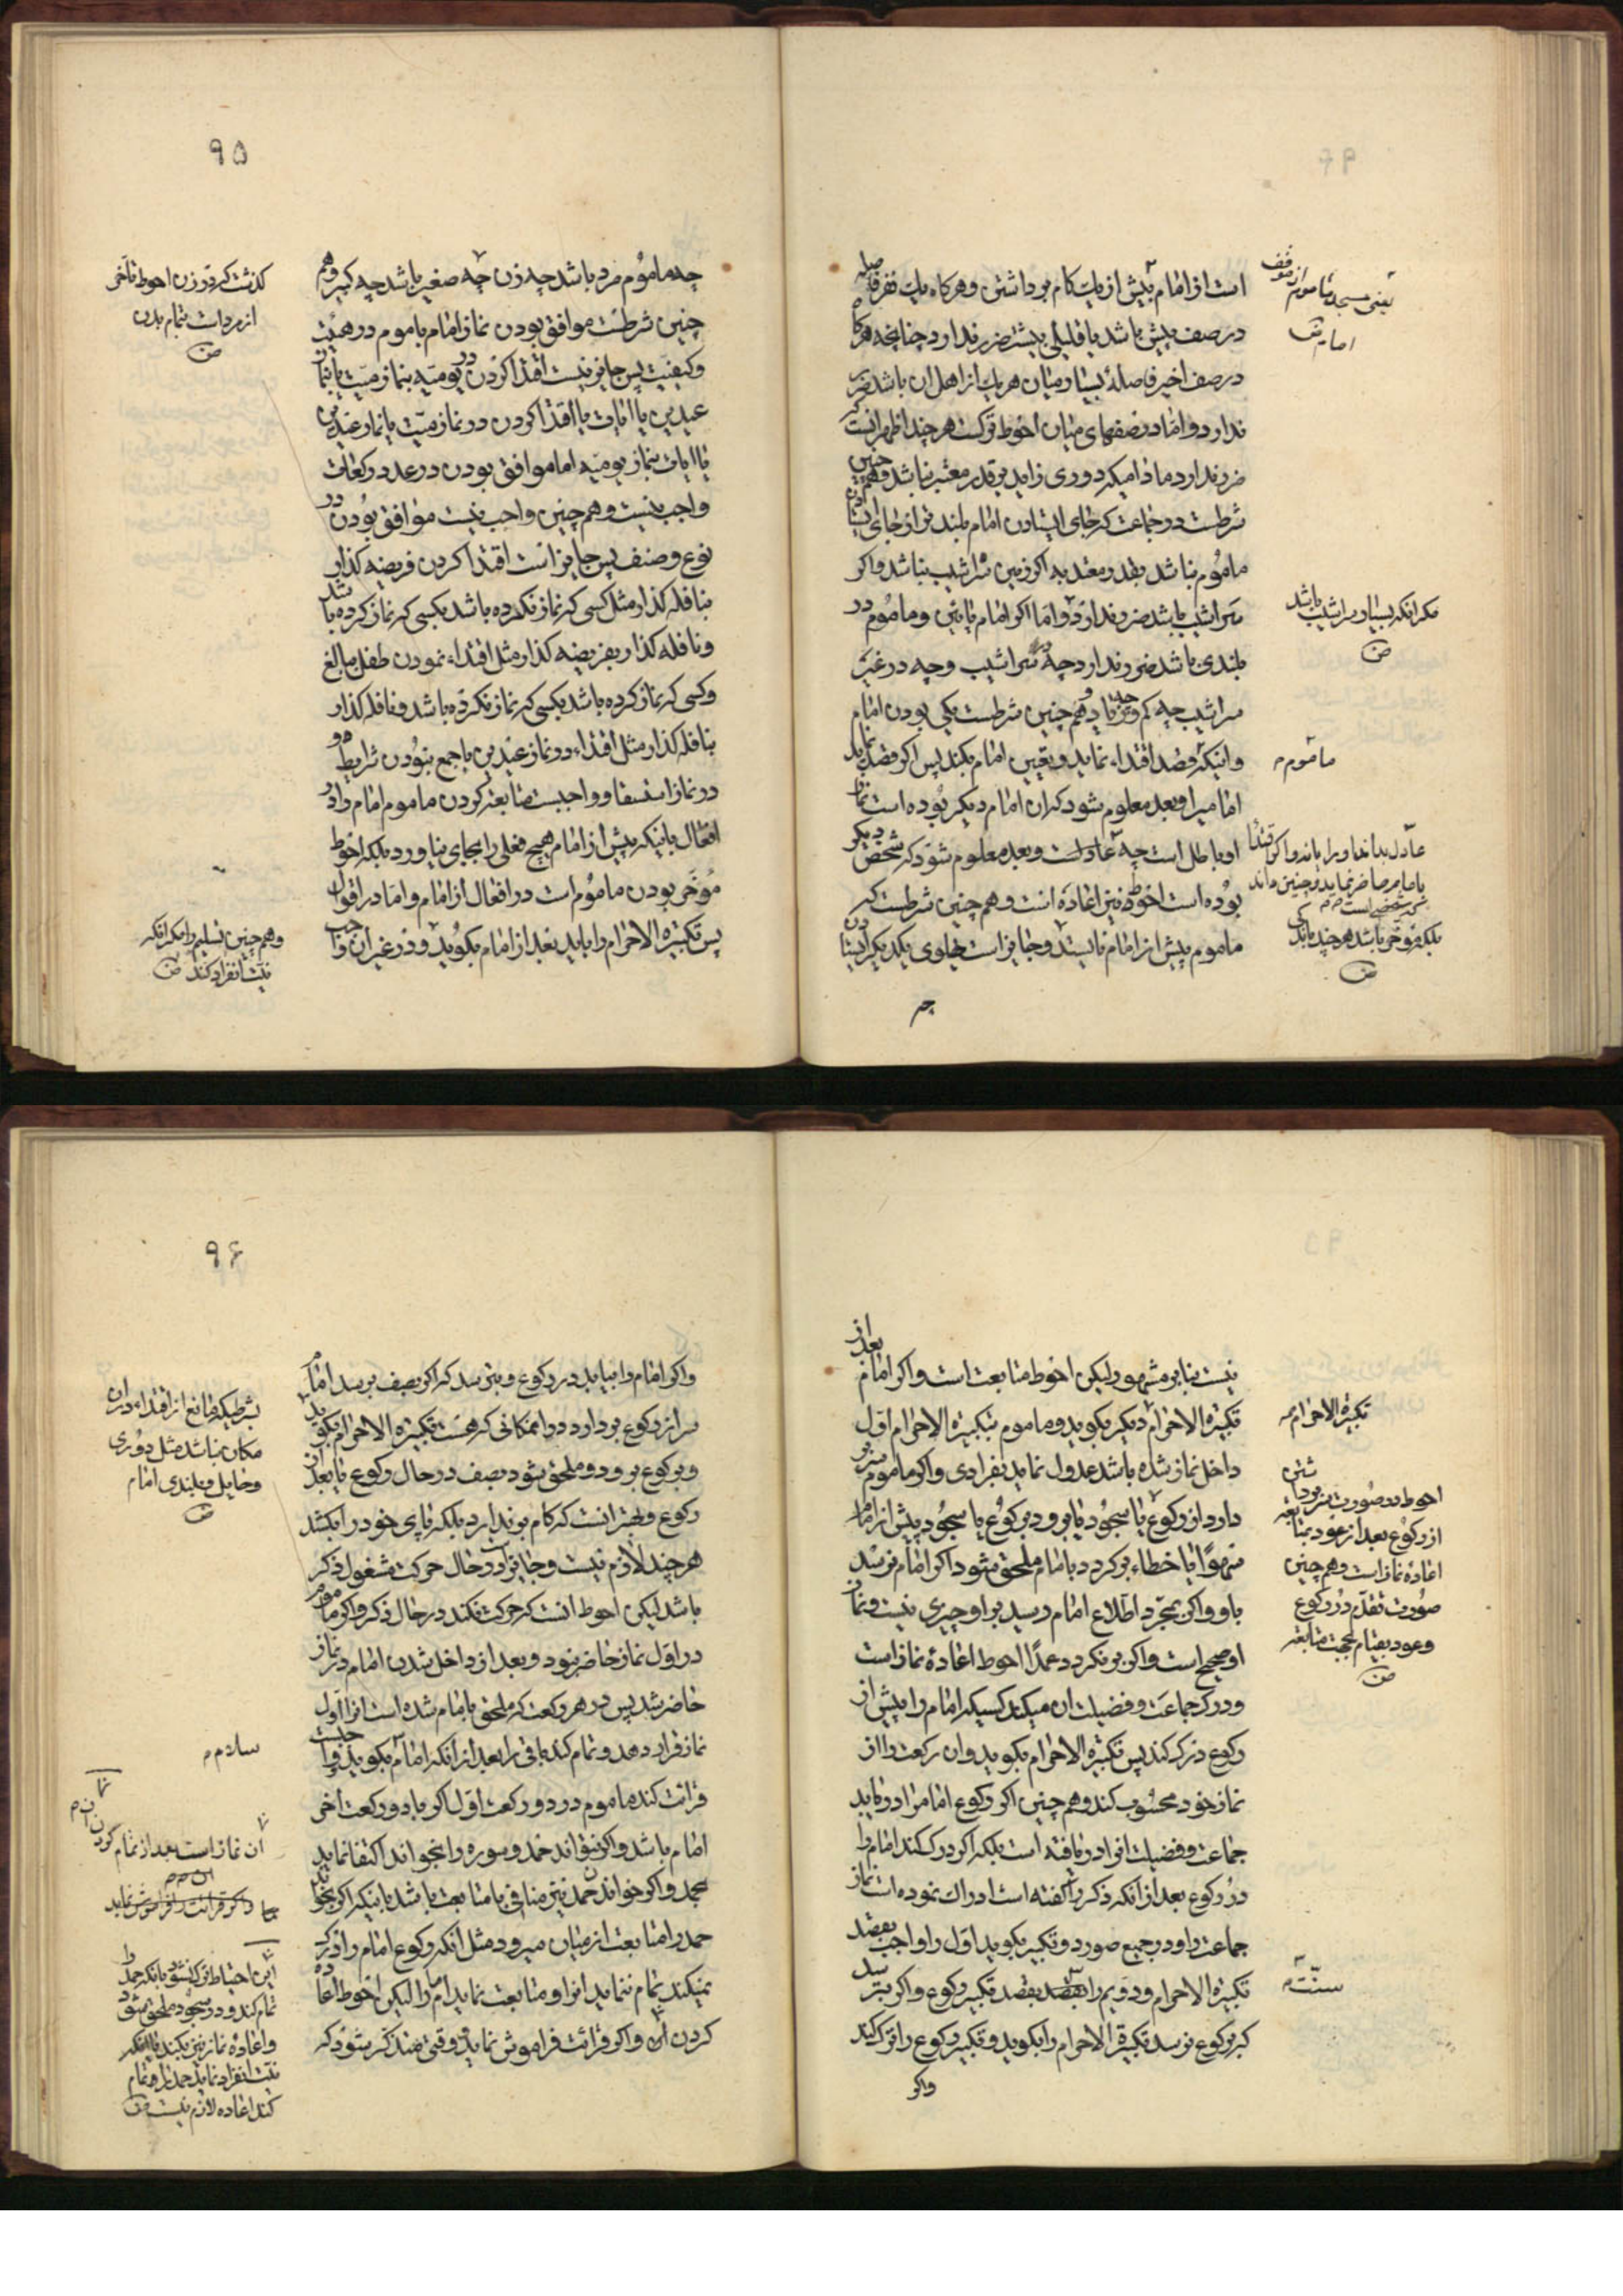 است از امام بیش از یک کام برداشتن و هرکاه یک نفر فاصله
در صف پیش باشد یا قلیلی بیشتر ضرر ندارد چنانچه هرکاه
در صف اخیر فاصلهٔ بسیار میان هر یک از اهل ان باشد ضرر
ندارد و اما در صفهای میان احوط ترکست هرچند اظهر انست که
ضرر ندارد مادامیکه دوری زاید بر قدر معتبر نباشد و همچنین
شرطست در جماعت که جای ایستادن امام بلندتر از جای ایستادن
ماموم نباشد بقدر معتد به اکر زمین سراشیب نباشد و اکر
سراشیب باشد ضرر ندارد و اما اکر امام پایین و ماموم در
بلندی باشد ضرر ندارد چه در سراشیب و چه در غیر
سراشیب چه کم و چه زیاد و هم چنین شرطست یکی بودن امام
و اینکه قصد اقتداء نماید و تعیین امام بکند پس اکر قصد نماید
امامیرا و بعد معلوم شود که ان امام دیکر بوده است نماز
او باطل است چه عادلست و بعد معلوم شود که شخص دیکر
بوده است احوط نیز اعاده است و هم چنین شرطست که
ماموم پیش از امام نایستد و جایز است پهلوی یکدیکر ایستادن
چه
یعنی مسجد ماموم از موقف
امام
مکر انکه بسیار سراشیب باشد
ص
ماموم
عادل بداند او را یا نه و اکر اقتدا
بامام حاضر نماید و چنین داند
که شخصی است
بلکه مؤخر باشد هرچند باندکی
ص
۹۵
چه ماموم مرد باشد چه زن چه صغیر باشد چه کبیر و هم
چنین شرطست موافق بودن نماز امام با ماموم در هیئت
و کیفیت پس جایز نیست اقتدا کردن در یومیه بنماز میت یا بنماز
عیدین یا ایات یا اقتدا کردن در نماز میت یا نماز عیدین
یا ایات بنماز یومیه اما موافق بودن در عدد رکعات
واجب نیست و هم چنین واجب نیست موافق بودن در
نوع و صنف پس جایز است اقتدا کردن فریضه کذار
بنافله کذار مثل کسی که نماز نکرده باشد بکسی که نماز کرده باشد
و نافله کذار بفریضه کذار مثل اقتداء نمودن طفل ببالغ
و کسی که نماز کرده باشد بکسی که نماز نکرده باشد و نافله کذار
بنافله کذار مثل اقتداء در نماز عیدین با جمع نبودن شرایط و
در نماز استسقا و واجبست متابعت کردن ماموم امام را در
افعال باینکه پیش از امام هیچ فعلی را بجای نیاورد بلکه احوط
مؤخر بودن ماموم است در افعال از امام و اما در اقوال
پس تکبیرة الاحرام را باید بعد از امام بکوید و در غیر ان واجب
کذشت که در زن احوط تأخر
از مرد است بتمام بدن
ص
و هم چنین تسلیم را مکر انکه
نیت انفراد کند ص
نیست بنابر مشهور لیکن احوط متابعت است و اکر امام بعد از
تکبیرة الاحرام دیکر بکوید و ماموم بتکبیرة الاحرام اول
داخل نماز شده باشد عدول نماید بفرادی و اکر ماموم سر بر
دارد از رکوع یا سجود یا برود برکوع یا سجود پیش از امام
سهوا یا خطاء برکردد بامام ملحق شود اکر امام نرسد
باو و اکر بمجرد اطلاع امام رسید بر او چیزی نیست و نماز
او صحیح است و اکر برنکردد عمدا احوط اعادهٔ نماز است
و درک جماعت و فضیلت ان میکند کسیکه امام را پیش از
رکوع درک کند پس تکبیرة الاحرام بکوید و ان رکعت را از
نماز خود محسوب کند و هم چنین اکر رکوع امام را دریابد
جماعت و فضیلت انرا دریافته است بلکه اکر درک کند امام را
در رکوع بعد از انکه ذکر را کفته است ادراک نموده است نماز
جماعت را و در جمیع صور دو تکبیر بکوید اول را واجب بقصد
تکبیرة الاحرام و دویم را بقصد تکبیر رکوع و اکر بترسد
که برکوع نرسد تکبیرة الاحرام را بکوید و تکبیر رکوع را ترک کند
واکر
تکبیرة الاحرام
احوط در صورت سر برداشتن
از رکوع بعد از عود بمتابعة
اعادهٔ نماز است و هم چنین
صورت تقدم در رکوع
و عود بقیام بجهت متابعه
ص
سنت
۹۶
و اکر امام را بیابد در رکوع و بترسد که اکر بصف برسد امام
سر از رکوع بردارد در مکانی که هست تکبیرة الاحرام بکوید
و برکوع برود و ملحق شود بصف در حال رکوع یا بعد از
رکوع و بهتر انست که کام برندارد بلکه پای خود را بکشد
هرچند لازم نیست و جایز است در حال حرکت مشغول ذکر
باشد لیکن احوط انست که حرکت نکند در حال ذکر و اکر ماموم
در اول نماز حاضر نبود و بعد از داخل شدن امام در نماز
حاضر شد پس در هر رکعت که ملحق بامام شده است انرا اول
نماز قرار دهد و تمام کند باقی را بعد از انکه امام بکوید و واجبست
قرائت کند ماموم در دو رکعت اول اکر با دو رکعت اخر
امام باشد و اکر نتواند حمد و سوره را بخواند اکتفا نماید
بحمد و اکر خواندن حمد نیز منافی با متابعت باشد باینکه اکر بخواند
حمد را متابعت از میان میرود مثل انکه رکوع امام را درک
نمیکند تمام ننماید انرا و متابعت نماید امام را لیکن احوط اعاده
کردن ان و اکر قرائت فراموش نماید و وقتی متذکر شود که
بشرطیکه مانع از اقتداء در ان
مکان نباشد مثل دوری
و حایل و بلندی امام
ص
سلام
ان نماز است بعد از تمام کردن
این احتیاط ترک نشود بانکه حمد را
تمام کند و در سجود ملحق شود
و اعادهٔ نماز نیز بکند یا اینکه
نیت انفراد نماید حمد را تمام
کند اعاده لازم نیست ص